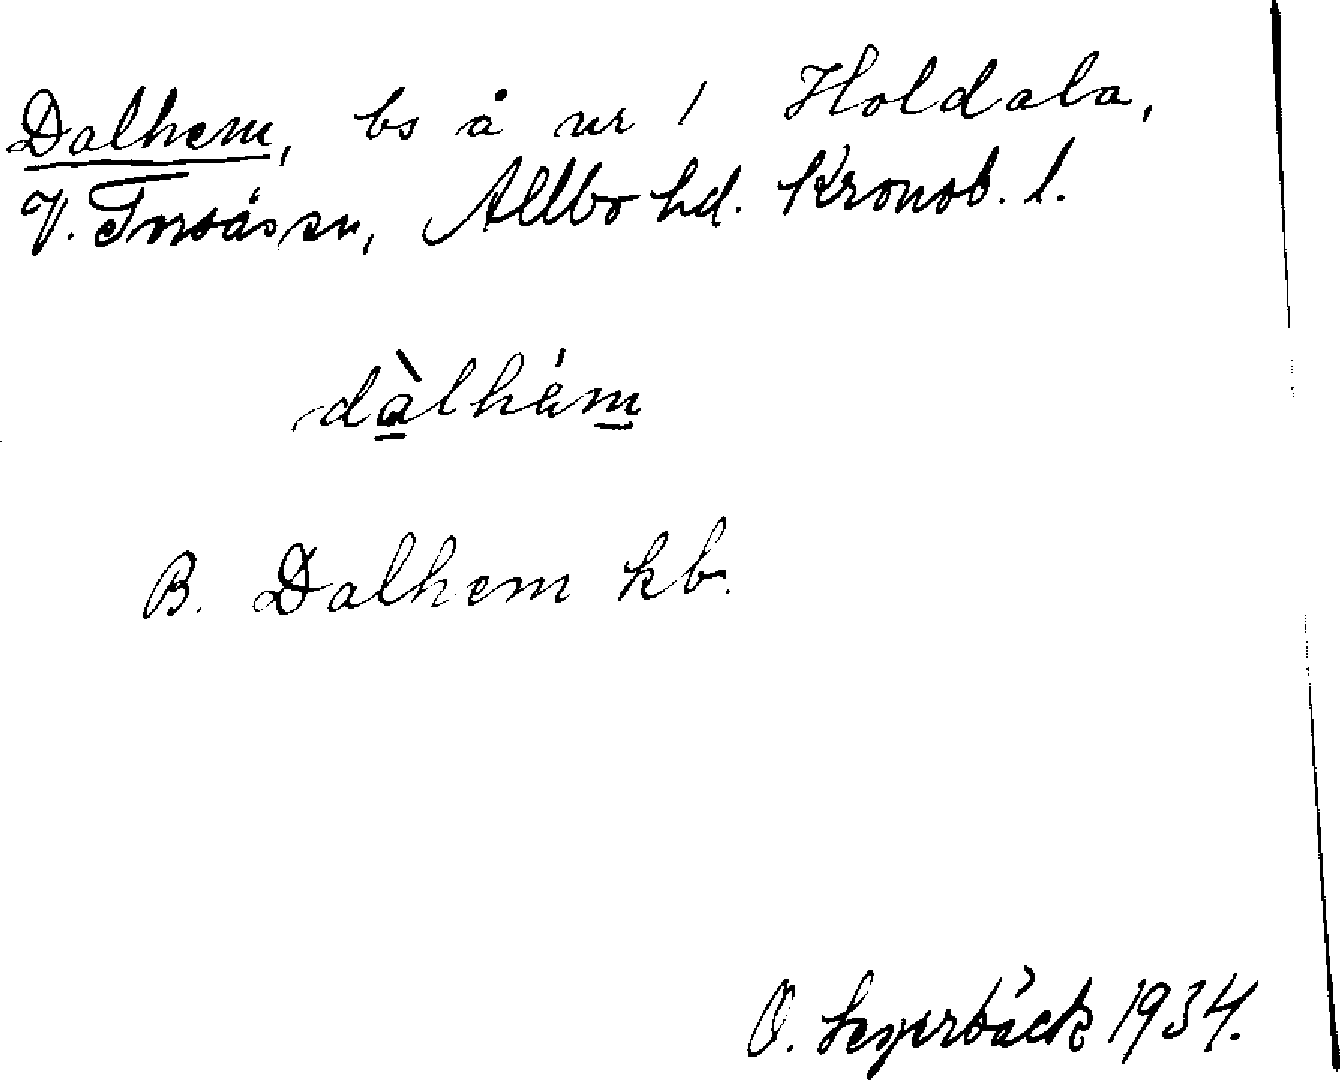 Dalhem, bs å nr 1 Holdala,
V. Torsåssn, Allbo hd. Kronob. l.
dàlhém
B. Dalhem kb.
O. 1934.